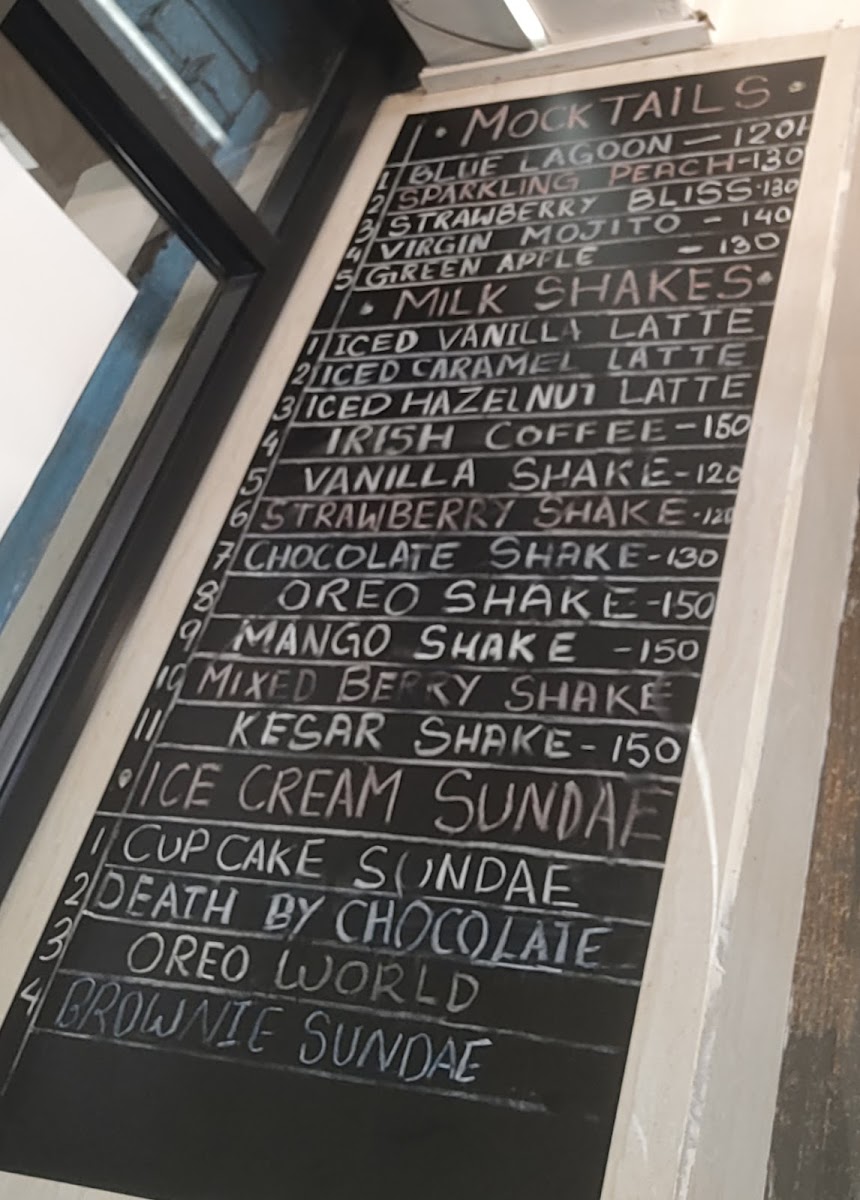 • MOCKTAILS •
1 BLUE LAGOON — 120
2 SPARKLING PEACH-130
3 STRAWBERRY BLISS-130
4 VIRGIN MOJITO - 140
5 GREEN APPLE - 130
• MILK SHAKES •
1 ICED VANILLA LATTE
2 ICED CARAMEL LATTE
3 ICED HAZELNUT LATTE
4 IRISH COFFEE-150
5 VANILLA SHAKE-120
6 STRAWBERRY SHAKE-120
7 CHOCOLATE SHAKE-130
8 OREO SHAKE-150
9 MANGO SHAKE -150
10 MIXED BERRY SHAKE
11 KESAR SHAKE-150
• ICE CREAM SUNDAE
1 CUPCAKE SUNDAE
2 DEATH BY CHOCOLATE
3 OREO WORLD
4 BROWNIE SUNDAE